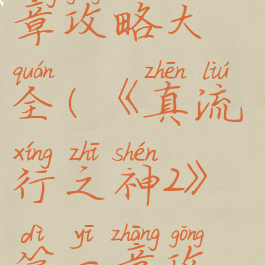 章攻略大
quán zhēn liú
全(《真流
xíng zhī shén
行之神2》
dì yī zhāng gōng
第一章攻